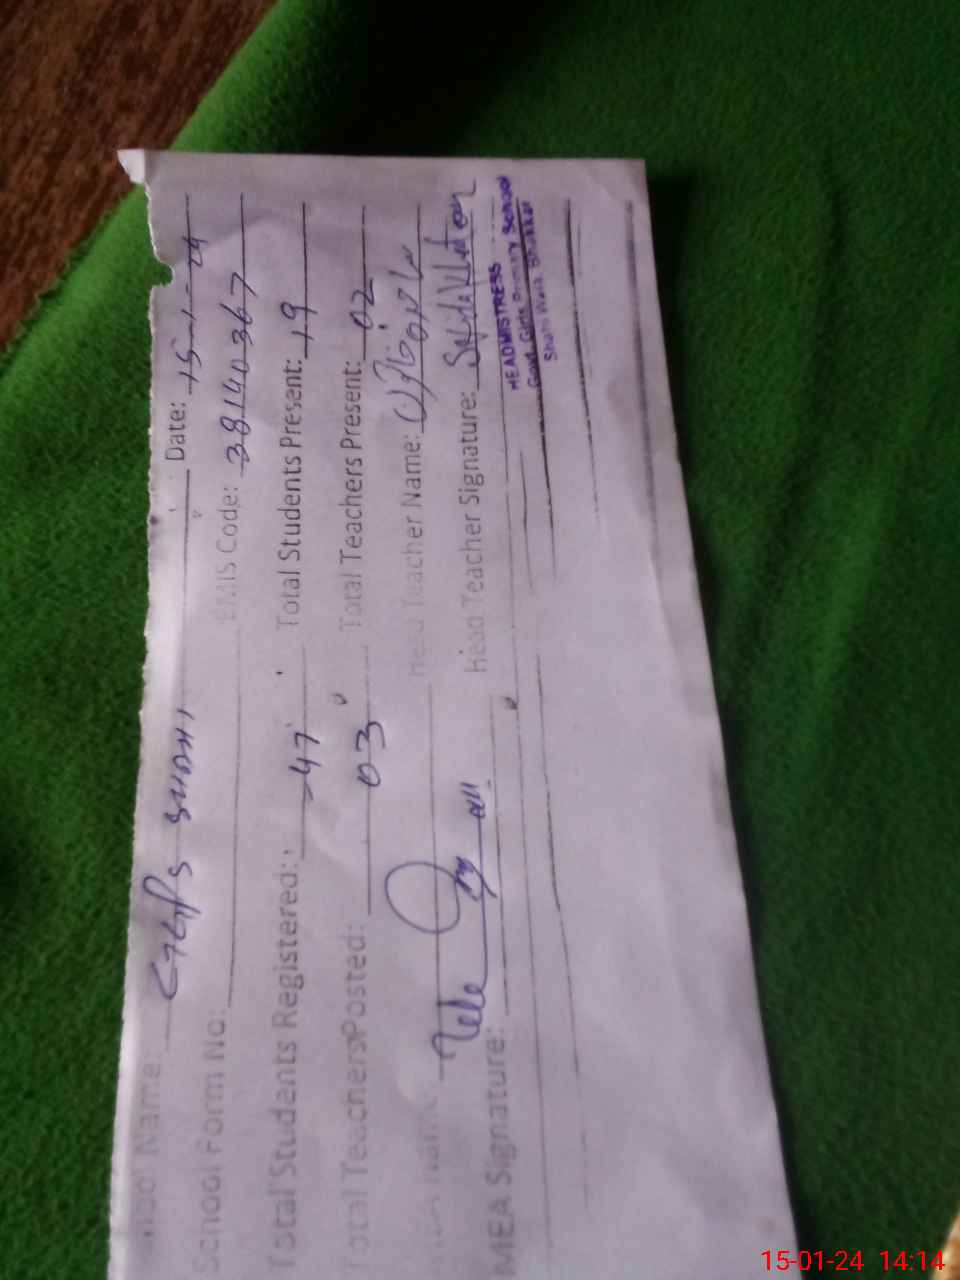 School Name: GGPS SHAHI Date: 15-1-24
School Form No: EMIS Code: 38140367
Total Students Registered: 47 Total Students Present: 19
Total Teachers Posted: 03 Total Teachers Present: 02
MEA Name: Head Teacher Name:
MEA Signature: Head Teacher Signature:
HEADMISTRESS
Govt. Girls Primary School
Shahi Wala, Bhakkar
15-01-24 14:14